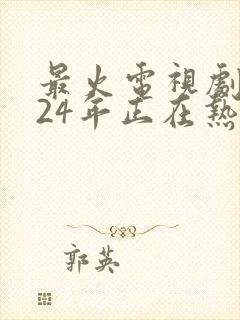 最火電視劇
24年正在熱
郭英